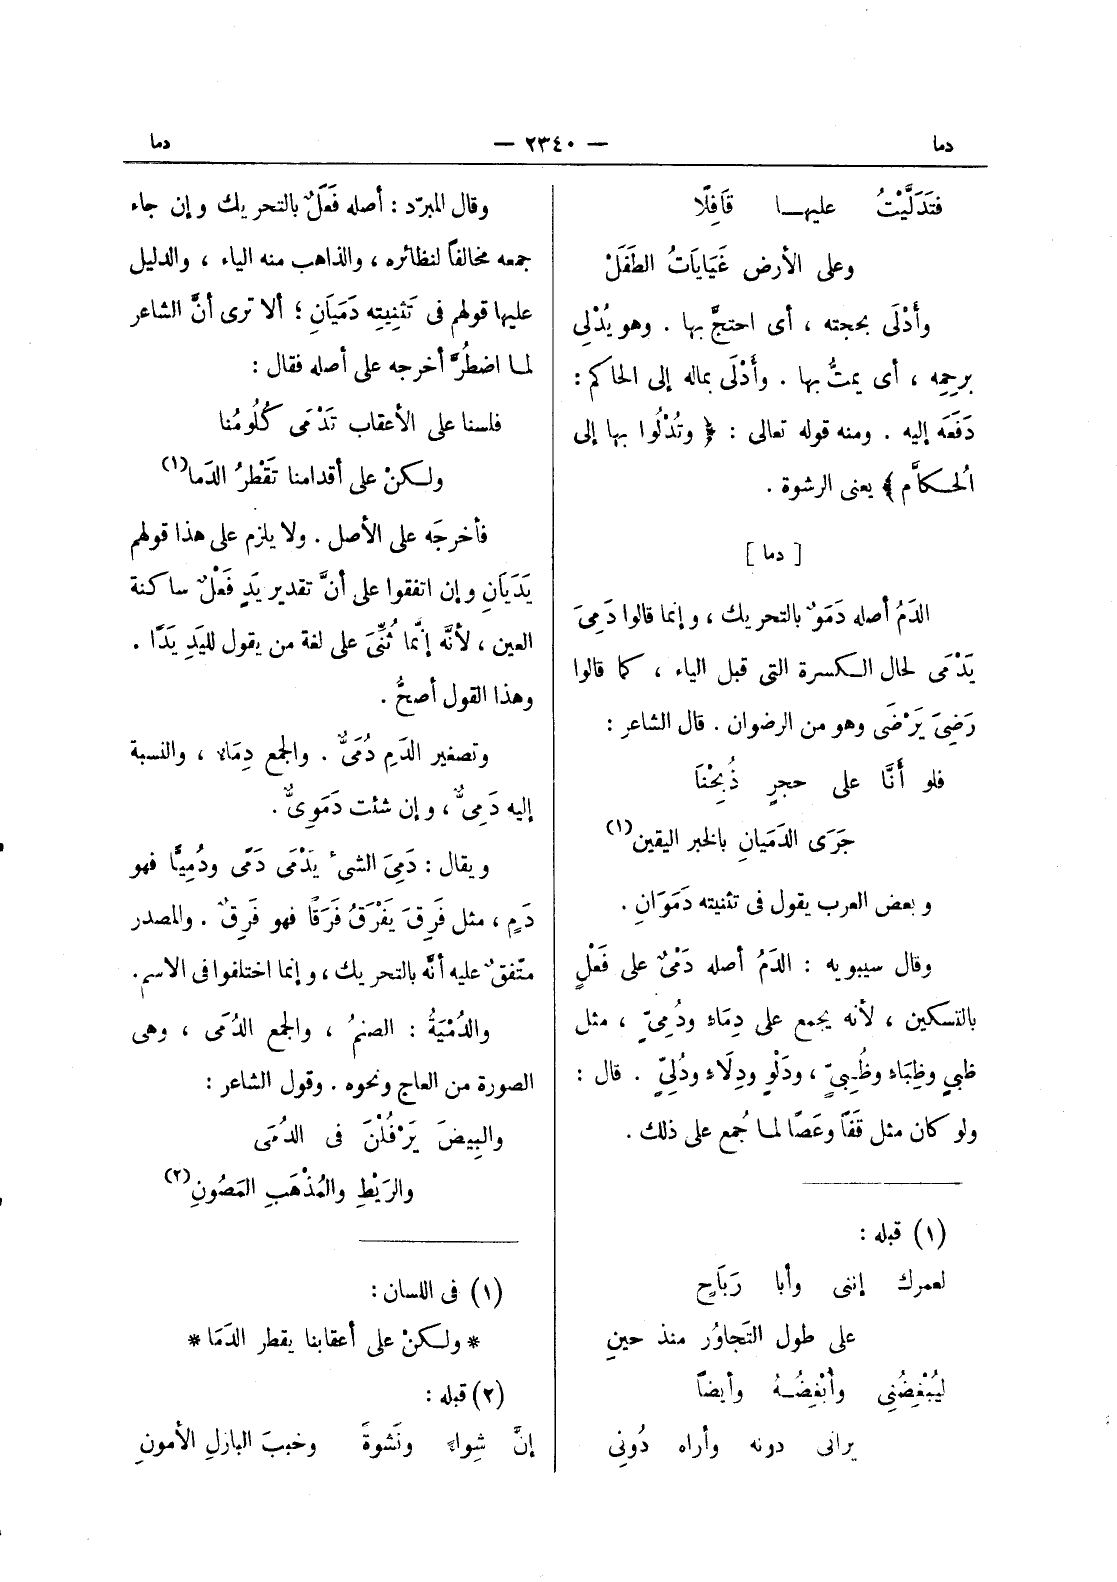 دما
— ٢٣٤٠ —
دما
فَتَدَلَّيْتُ عليهـا قَافِلًا
وعلى الأرض غَيَايَاتُ الطَفَلْ
وأَدْلَى بحجته ، أى احتجَّ بها . وهو يُدْلِى
برحِمِه ، أى يمتُّ بها . وأَدْلَى بماله إلى الحاكم :
دَفَعَه إليه . ومنه قوله تعالى : ﴿ وتُدْلُوا بها إلى
الحُـكاَّم ﴾ يعنى الرشوة .
[ دما ]
الدَمُ أصله دَمَوٌ بالتحريك ، وإنما قالوا دَمِىَ
يَدْمَى لحال الـكسرة التى قبل الياء ، كما قالوا
رَضِىَ يَرْضَى وهو من الرضوان . قال الشاعر :
فلو أَنَّا على حجرٍ ذُبِحْنَا
جَرَى الدَمَيانِ بالخبر اليقين(١)
وبعض العرب يقول فى تثنيته دَمَوَانِ .
وقال سيبويه : الدَمُ أصله دَمْىٌ على فَعْلٍ
بالتسكين ، لأنه يجمع على دِمَاءٍ ودُمِىٍّ ، مثل
ظبىٍ وظِبَاءٍ وظُـبِىٍّ ، ودَلْوٍ ودِلَاءٍ ودُلِىٍّ . قال :
ولو كان مثل قَفًا وعَصًا لمـا جُمع على ذلك .
(١) قبله :
لعمرك إننى وأبا رَبَاحٍ
على طول التَجاوُر منذ حينِ
لَيُبْغِضُنِى وأُبْغِضُـهُ وأيضاً
يرانى دونه وأراه دُونِى
وقال المبرّد : أصله فَعَلٌ بالتحريك وإن جاء
جمعه مخالفاً لنظائره ، والذاهب منه الياء ، والدليل
عليها قولهم فى تَثنِيتِه دَمَيَانِ ؛ ألا ترى أنَّ الشاعر
لمـا اضطُرَّ أخرجه على أصله فقال :
فلسنا على الأعقاب تَدْمَى كُلُومُنا
ولـكنْ على أقدامنا تَقْطرُ الدَما(١)
فأخرجَه على الأصل . ولا يلزم على هذا قولهم
يَدَيَانِ وإن اتفقوا على أنَّ تقدير يَدٍ فَعْلٌ ساكنة
العين ، لأنَّه إنَّما ثُنِّىَ على لغة من يقول لليَدِ يَدًا .
وهذا القول أصحُّ .
وتصغير الدَمِ دُمَىٌّ . والجمع دِمَاءٌ ، والنسبة
إليه دَمِىٌّ ، وإن شئت دَمَوِىٌّ .
ويقال : دَمِىَ الشىءُ يَدْمَى دَمًى ودُمِيًّا فهو
دَمٍ ، مثل فَرِقَ يَفْرَقُ فَرَقًا فهو فَرِقٌ . والمصدر
متّفقٌ عليه أنَّه بالتحريك ، وإنما اختلفوا فى الاسم .
والدُمْيَةُ : الصنمُ ، والجمع الدُمَى ، وهى
الصورة من العاج ونحوه . وقول الشاعر :
والبِيضَ يَرْفُلْنَ فى الدُمَى
والرَيْطِ والمُذْهَبِ المَصُونِ(٢)
(١) فى اللسان :
* ولـكنْ على أعقابنا يقطر الدَمَا *
(٢) قبله :
إنَّ شِواءً ونَشوةً وخببَ البازلِ الأمونِ